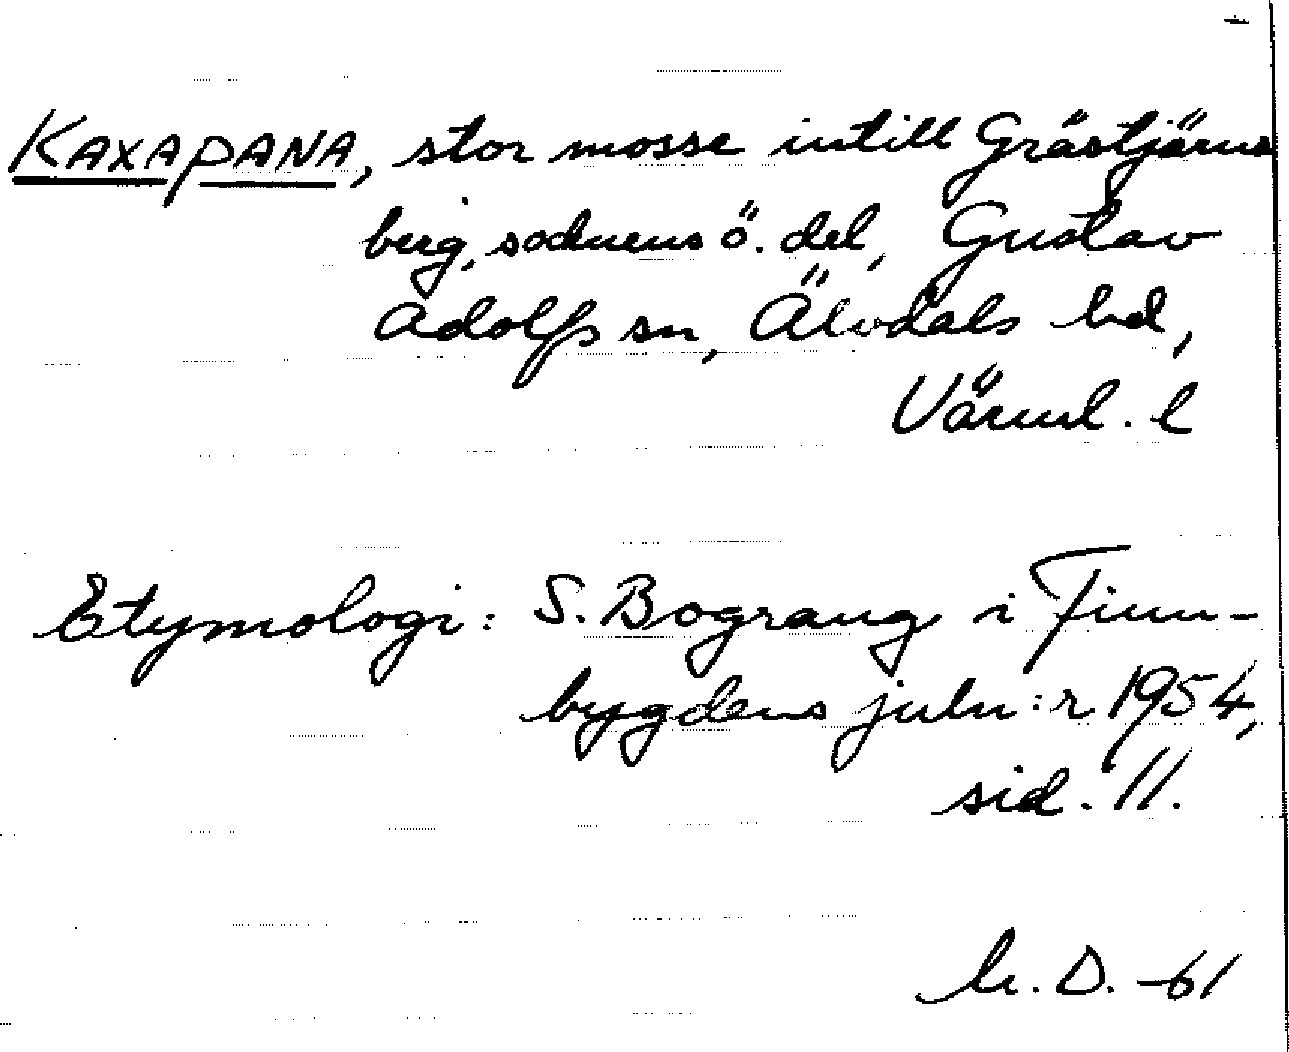 KAXAPANA, stor mosse intill Grästjärns
berg, socknens ö. del, Gustav
Adolfs sn, Älvdals hd,
Värml. l
Etymologi: S. Bograng i Finn-
bygdens juln:r 1954,
sid. 11.
D. -61